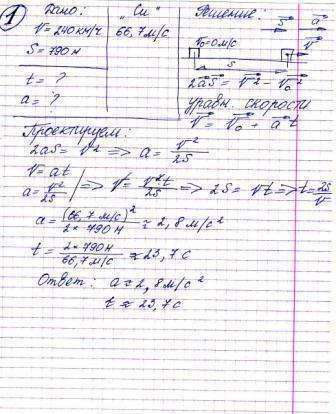 1 Дано: „Си" Решение:
V = 240 км/ч 66,7 м/с
S = 790 м
V₀=0м/с S a V
t = ? S
a = ? 2aS = V² - V₀²
уравн. скорости
V = V₀ + a t
Проектируем:
2aS = V² => a = V²/2S
V = at
a = V²/2S | => V = V²t/2S => 2S = Vt => t = 2S/V
a = (66,7 м/с)²/2 × 790 м ≈ 2,8 м/с²
t = 2 × 790 м/66,7 м/с ≈ 23,7 с
Ответ: a ≈ 2,8 м/с²
t ≈ 23,7 с